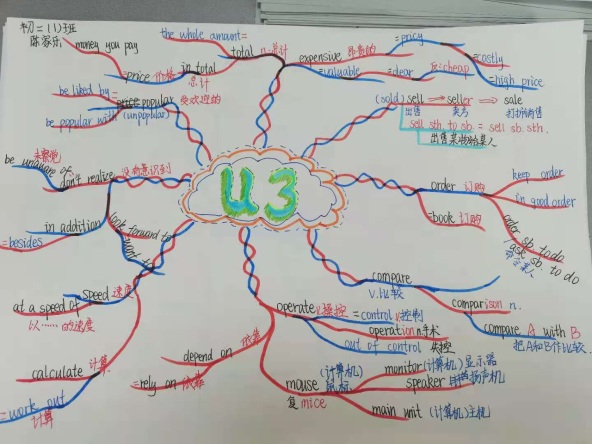 初二(1)班
陈家乐
money you pay
=price 价格
in total
总计
the whole amount=
total n.总计
expensive 昂贵的
=pricy
=costly
=high price
=valuable
=dear
反:cheap
be liked by =
popular 受欢迎的
be popular with (unpopular)
(sold) sell → seller → sale
出售
卖者
sell sth. to sb. = sell sb. sth.
出售某物给某人
be unaware of
don't realize
没有意识到
in addition
=besides
look forward to
want to
U3
order 订购
keep order
in good order
=book 订购
order sb. to do
ask sb. to do
命令某人
speed 速度
at a speed of
以……的速度
calculate 计算
=work out
计算
depend on
依靠
=rely on 依靠
operate v.操控
=control v.控制
operation n.手术
out of control 失控
compare
v.比较
comparison n.
compare A with B
把A和B作比较.
mouse
(计算机)
鼠标
复mice
monitor(计算机)显示器
speaker 扬声机
main unit (计算机)主机